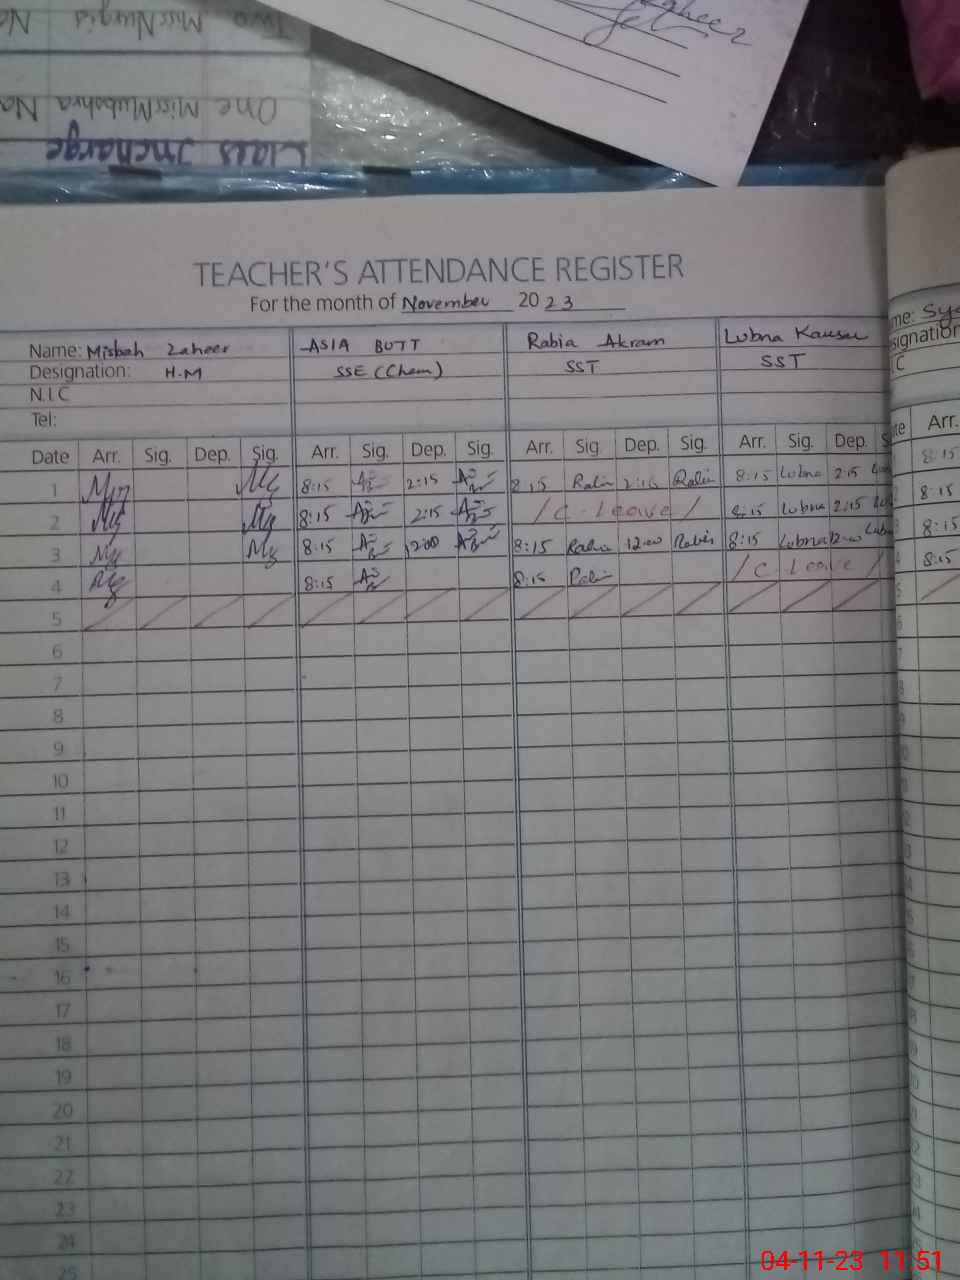 Two Miss Nargis
One Miss Mubshra
Class Incharge
TEACHER'S ATTENDANCE REGISTER
For the month of November 2023
Name: Misbah Zaheer ASIA BUTT Rabia Akram Lubna Kausar
Designation: H.M SSE (Chem) SST SST
N.I.C
Tel:
Date Arr. Sig. Dep. Sig. Arr. Sig. Dep. Sig. Arr. Sig. Dep. Sig. Arr. Sig. Dep. Arr.
1 8:15 2:15 8:15 Rabia 2:15 Rabia 8:15 Lubna 2:15 8:15
2 8:15 2:15 / C. Leave / 8:15 Lubna 2:15 8:15
3 8:15 12:00 8:15 Rabia 12:00 Rabia 8:15 Lubna 12:00 8:15
4 8:15 8:15 Rabia / C Leave / 8:15
5
6
7
8
9
10
11
12
13
14
15
16
17
18
19
20
21
22
23
24
25
04-11-23 11:51